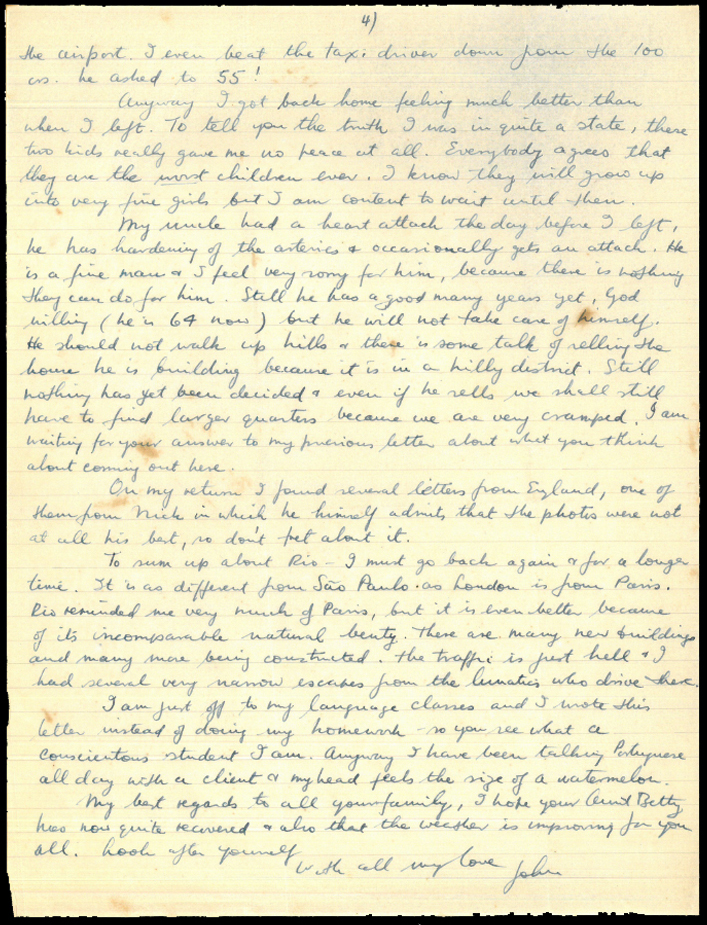 4)
the airport. I even beat the taxi driver down from the 100
crs. he asked to 55!
Anyway I got back home feeling much better than
when I left. To tell you the truth I was in quite a state, these
two kids really gave me no peace at all. Everybody agrees that
they are the worst children ever. I know they will grow up
into very fine girls but I am content to wait until then.
My uncle had a heart attack the day before I left,
he has hardening of the arteries & occasionally gets an attack. He
is a fine man & I feel very sorry for him, because there is nothing
they can do for him. Still he has a good many years yet, God
willing (he is 64 now) but he will not take care of himself.
He should not walk up hills & there is some talk of selling the
house he is building because it is in a hilly district. Still
nothing has yet been decided & even if he sells we shall still
have to find larger quarters because we are very cramped. I am
waiting for your answer to my previous letter about what you think
about coming out here.
On my return I found several letters from England, one of
them from Nick in which he himself admits that the photos were not
at all his best, so don't fret about it.
To sum up about Rio - I must go back again & for a longer
time. It is as different from São Paulo as London is from Paris.
Rio reminded me very much of Paris, but it is even better because
of its incomparable natural beuty. There are many new buildings
and many more being constructed. The traffic is just hell & I
had several very narrow escapes from the lunatics who drive there.
I am just off to my language classes and I wrote this
letter instead of doing my homework - so you see what a
conscientous student I am. Anyway I have been talking Portuguese
all day with a client & my head feels the size of a watermelon.
My best regards to all your family, I hope your Aunt Betty
has now quite recovered & also that the weather is improving for you
all. Look after yourself
With all my love John